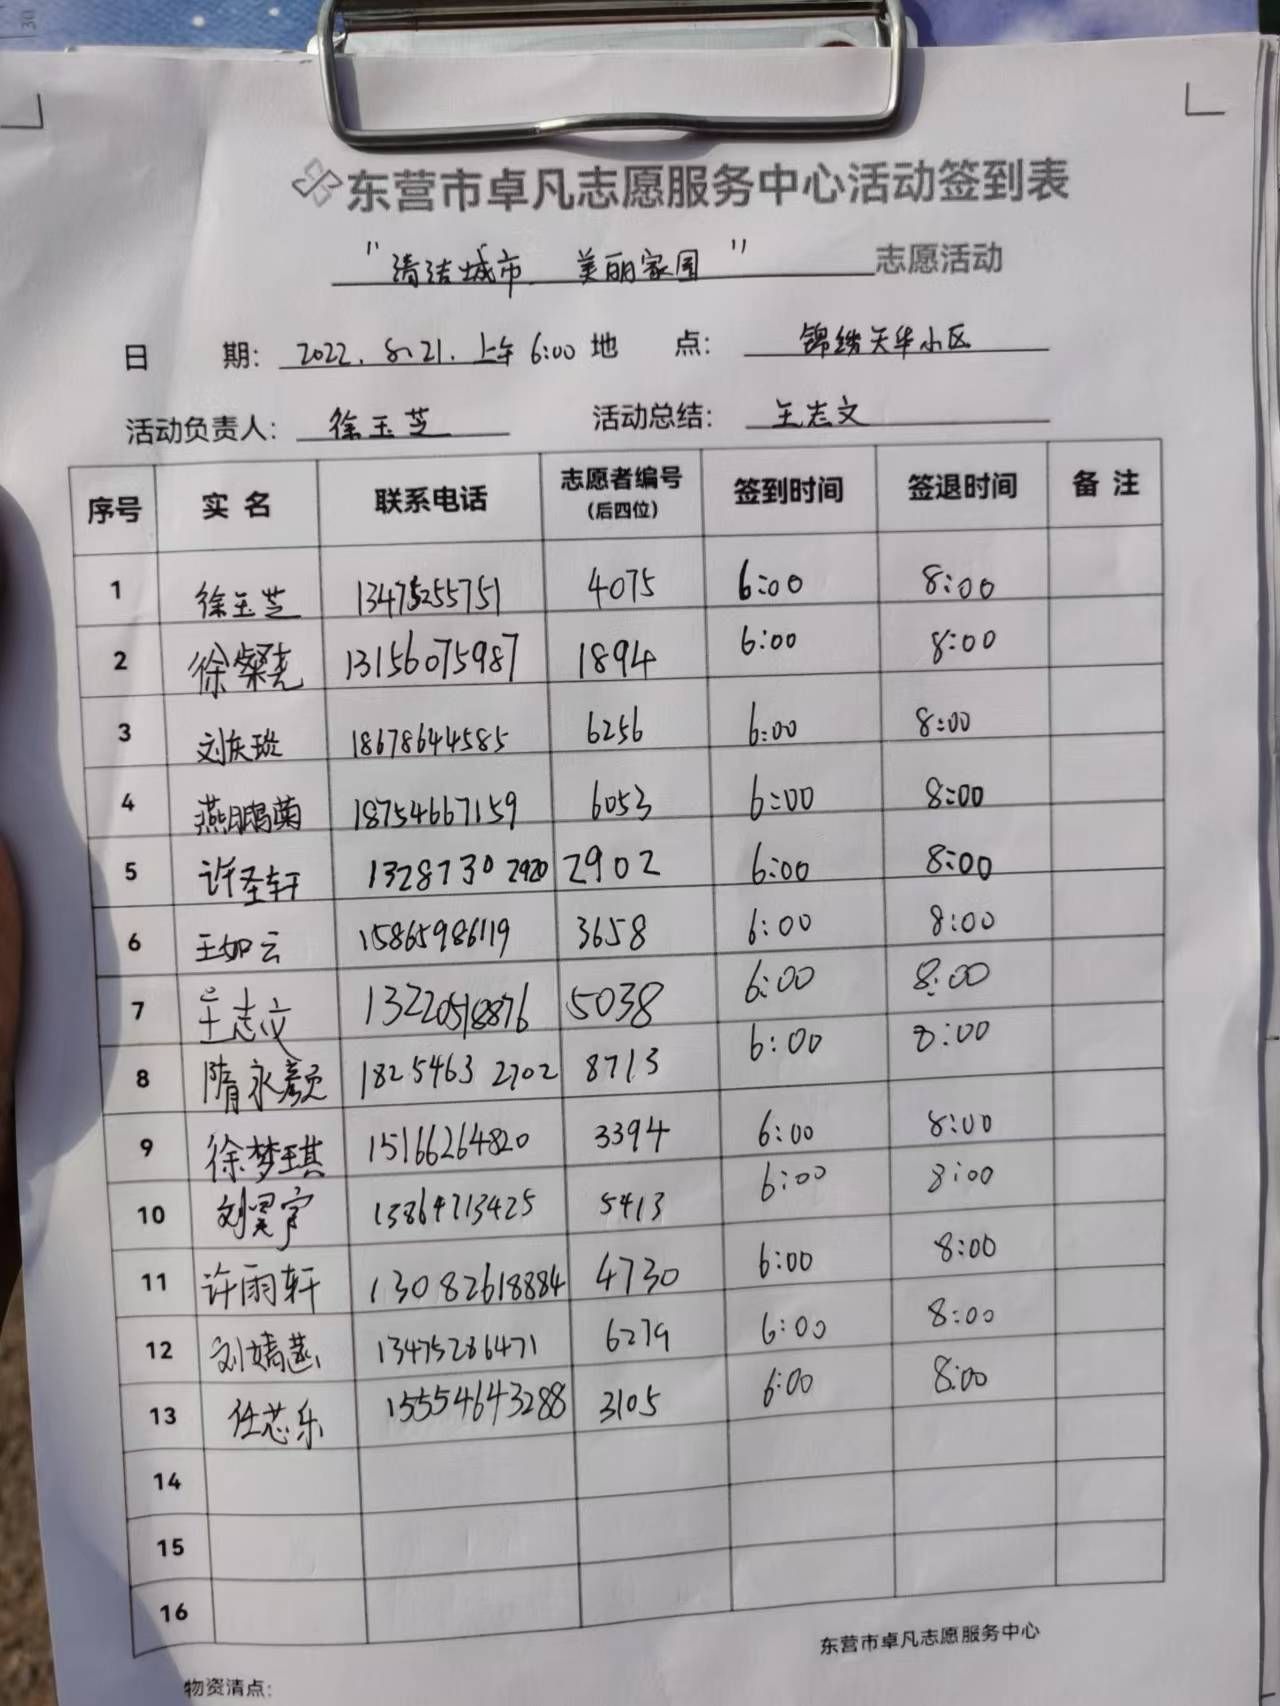 东营市卓凡志愿服务中心活动签到表
"清洁城市 美丽家园" 志愿活动
日 期: 2022.8.21.上午6:00 地 点: 锦绣天华小区
活动负责人: 徐玉芝 活动总结: 王志文
序号 实名 联系电话 志愿者编号(后四位) 签到时间 签退时间 备注
1 徐玉芝 13475255751 4075 6:00 8:00
2 徐粲尧 13156075987 1894 6:00 8:00
3 刘庆璇 18678644585 6256 6:00 8:00
4 燕鹏菊 18754667159 6053 6:00 8:00
5 许圣轩 13287302920 2902 6:00 8:00
6 王如云 15865986119 3658 6:00 8:00
7 王志文 13220518876 5038 6:00 8:00
8 隋永颜 18254632702 8713 6:00 8:00
9 徐梦琪 15166264820 3394 6:00 8:00
10 刘昊宇 13864713425 5413 6:00 8:00
11 许雨轩 13082618884 4730 6:00 8:00
12 刘嫣 13475286471 6279 6:00 8:00
13 任芯乐 15554643288 3105 6:00 8:00
14
15
16
东营市卓凡志愿服务中心
物资清点: